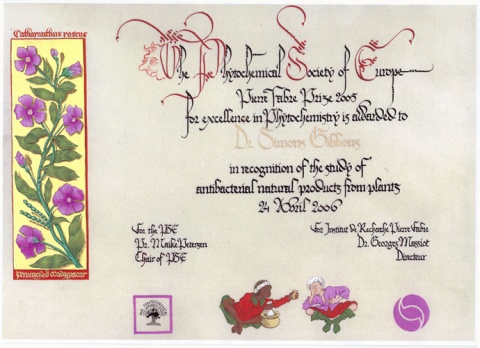 Catharanthus roseus
The Phytochemical Society of Europe
Pierre Fabre Prize 2005
for excellence in Phytochemistry is awarded to
Dr. Simons Gibbons
in recognition of the study of
antibacterial natural products from plants
24 April 2006
For the PSE
Pr. Maike Petersen
Chair of PSE
For Institut de Recherche Pierre Fabre
Dr. Georges Massiot
Directeur